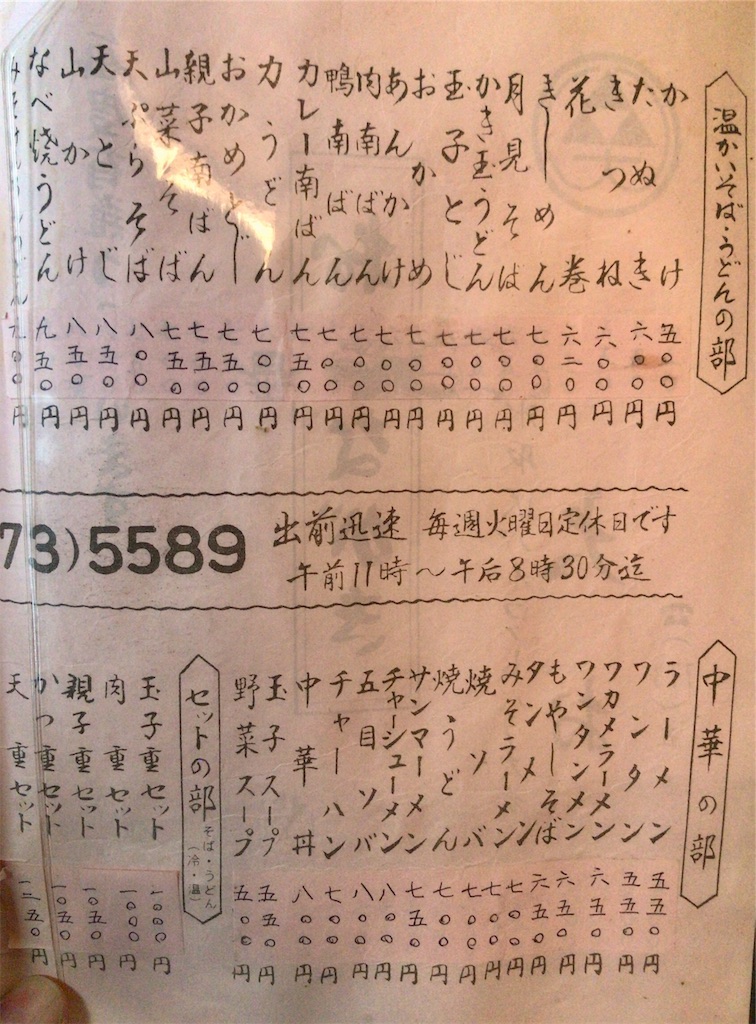 温かいそば・うどんの部
かけ 五〇〇円
たぬき 六〇〇円
きつね 六〇〇円
花巻 六二〇円
きしめん 七〇〇円
月見そば 七〇〇円
かき玉うどん 七〇〇円
玉子とじ 七〇〇円
おかめ 七〇〇円
あんかけ 七〇〇円
肉南ばん 七〇〇円
鴨南ばん 七〇〇円
カレー南ばん 七五〇円
力うどん 七〇〇円
おかめとじ 七五〇円
親子南ばん 七五〇円
山菜そば 七五〇円
天ぷらそば 八〇〇円
天とじ 八五〇円
山かけ 八五〇円
なべ焼うどん 九五〇円
73)5589
出前迅速 毎週火曜日定休日です
午前11時〜午后8時30分迄
中華の部
ラーメン 五五〇円
ワンタン 五五〇円
ワカメラーメン 六五〇円
ワンタンメン 六五〇円
もやしそば 六五〇円
タンメン 七〇〇円
みそラーメン 七〇〇円
焼ソバ 七〇〇円
焼うどん 七〇〇円
サンマーメン 七五〇円
チャーシューメン 八〇〇円
五目ソバ 八〇〇円
チャーハン 七〇〇円
中華丼 八〇〇円
玉子スープ 五五〇円
野菜スープ 五〇〇円
セットの部 そば・うどん(冷・温)
玉子重セット 一〇〇〇円
肉重セット 一〇〇〇円
親子重セット 一〇五〇円
かつ重セット 一〇五〇円
天重セット 一二五〇円